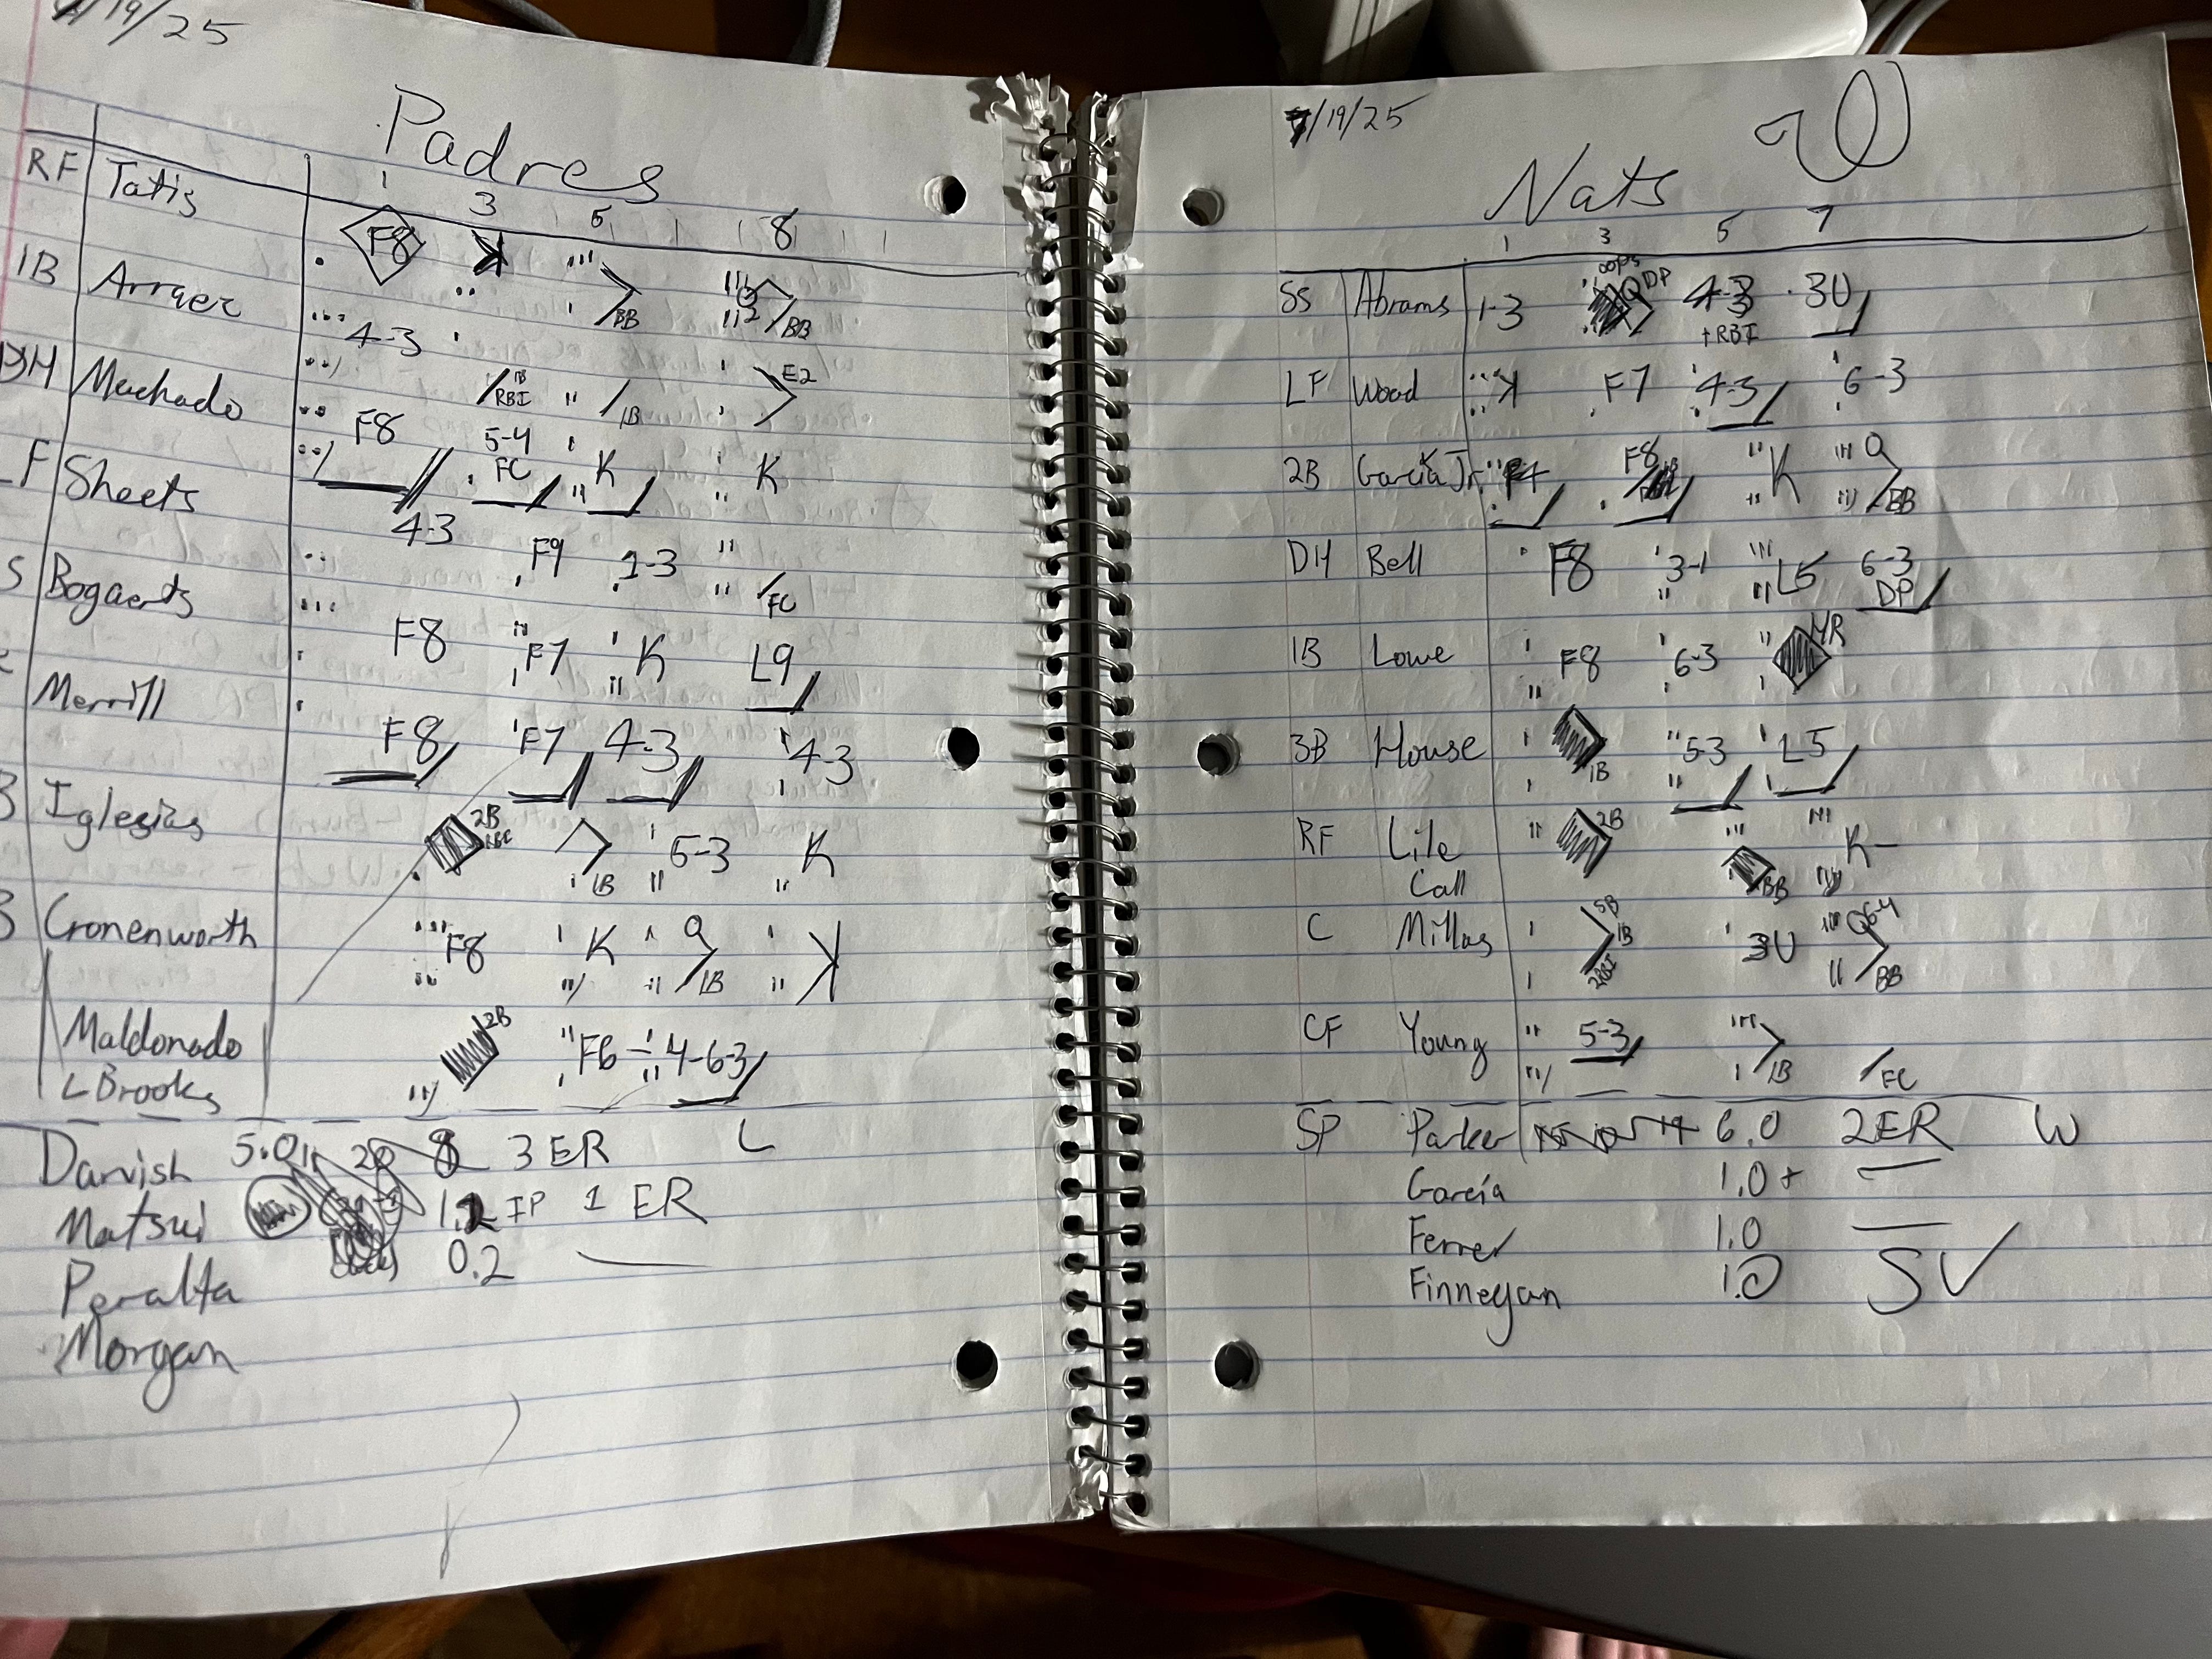 /19/25
Padres
1 3 5 8
RF Tatis F8 K BB BB
1B Arraez 4-3 1B RBI 1B E2
DH Machado F8 5-4 FC K K
LF Sheets 4-3 F9 1-3 FC
S Bogaerts F8 F7 K L9
Merrill F8 F7 4-3 4-3
B Iglesias 2B RBI 1B 5-3 K
B Cronenworth F8 K 1B K
Maldonado 2B F6 4-6-3
L Brooks
Darvish 5.0 8 3 ER L
Matsui IP 1 ER
Peralta 0.2 —
Morgan
7/19/25
W
Nats
1 3 5 7
SS Abrams 1-3 oops DP 4-3 +RBI 3U
LF Wood K F7 4-3 6-3
2B García Jr. K F8 K BB
DH Bell F8 3-1 L5 6-3 DP
1B Lowe F8 6-3 HR
3B House 1B 5-3 L5
RF Lile 2B BB K-
Call
C Millas SB 1B 2RBI 3U 6-4 BB
CF Young 5-3 1B FC
SP Parker 6.0 2ER W
García 1.0+ —
Ferrer 1.0 —
Finnegan 1.0 SV